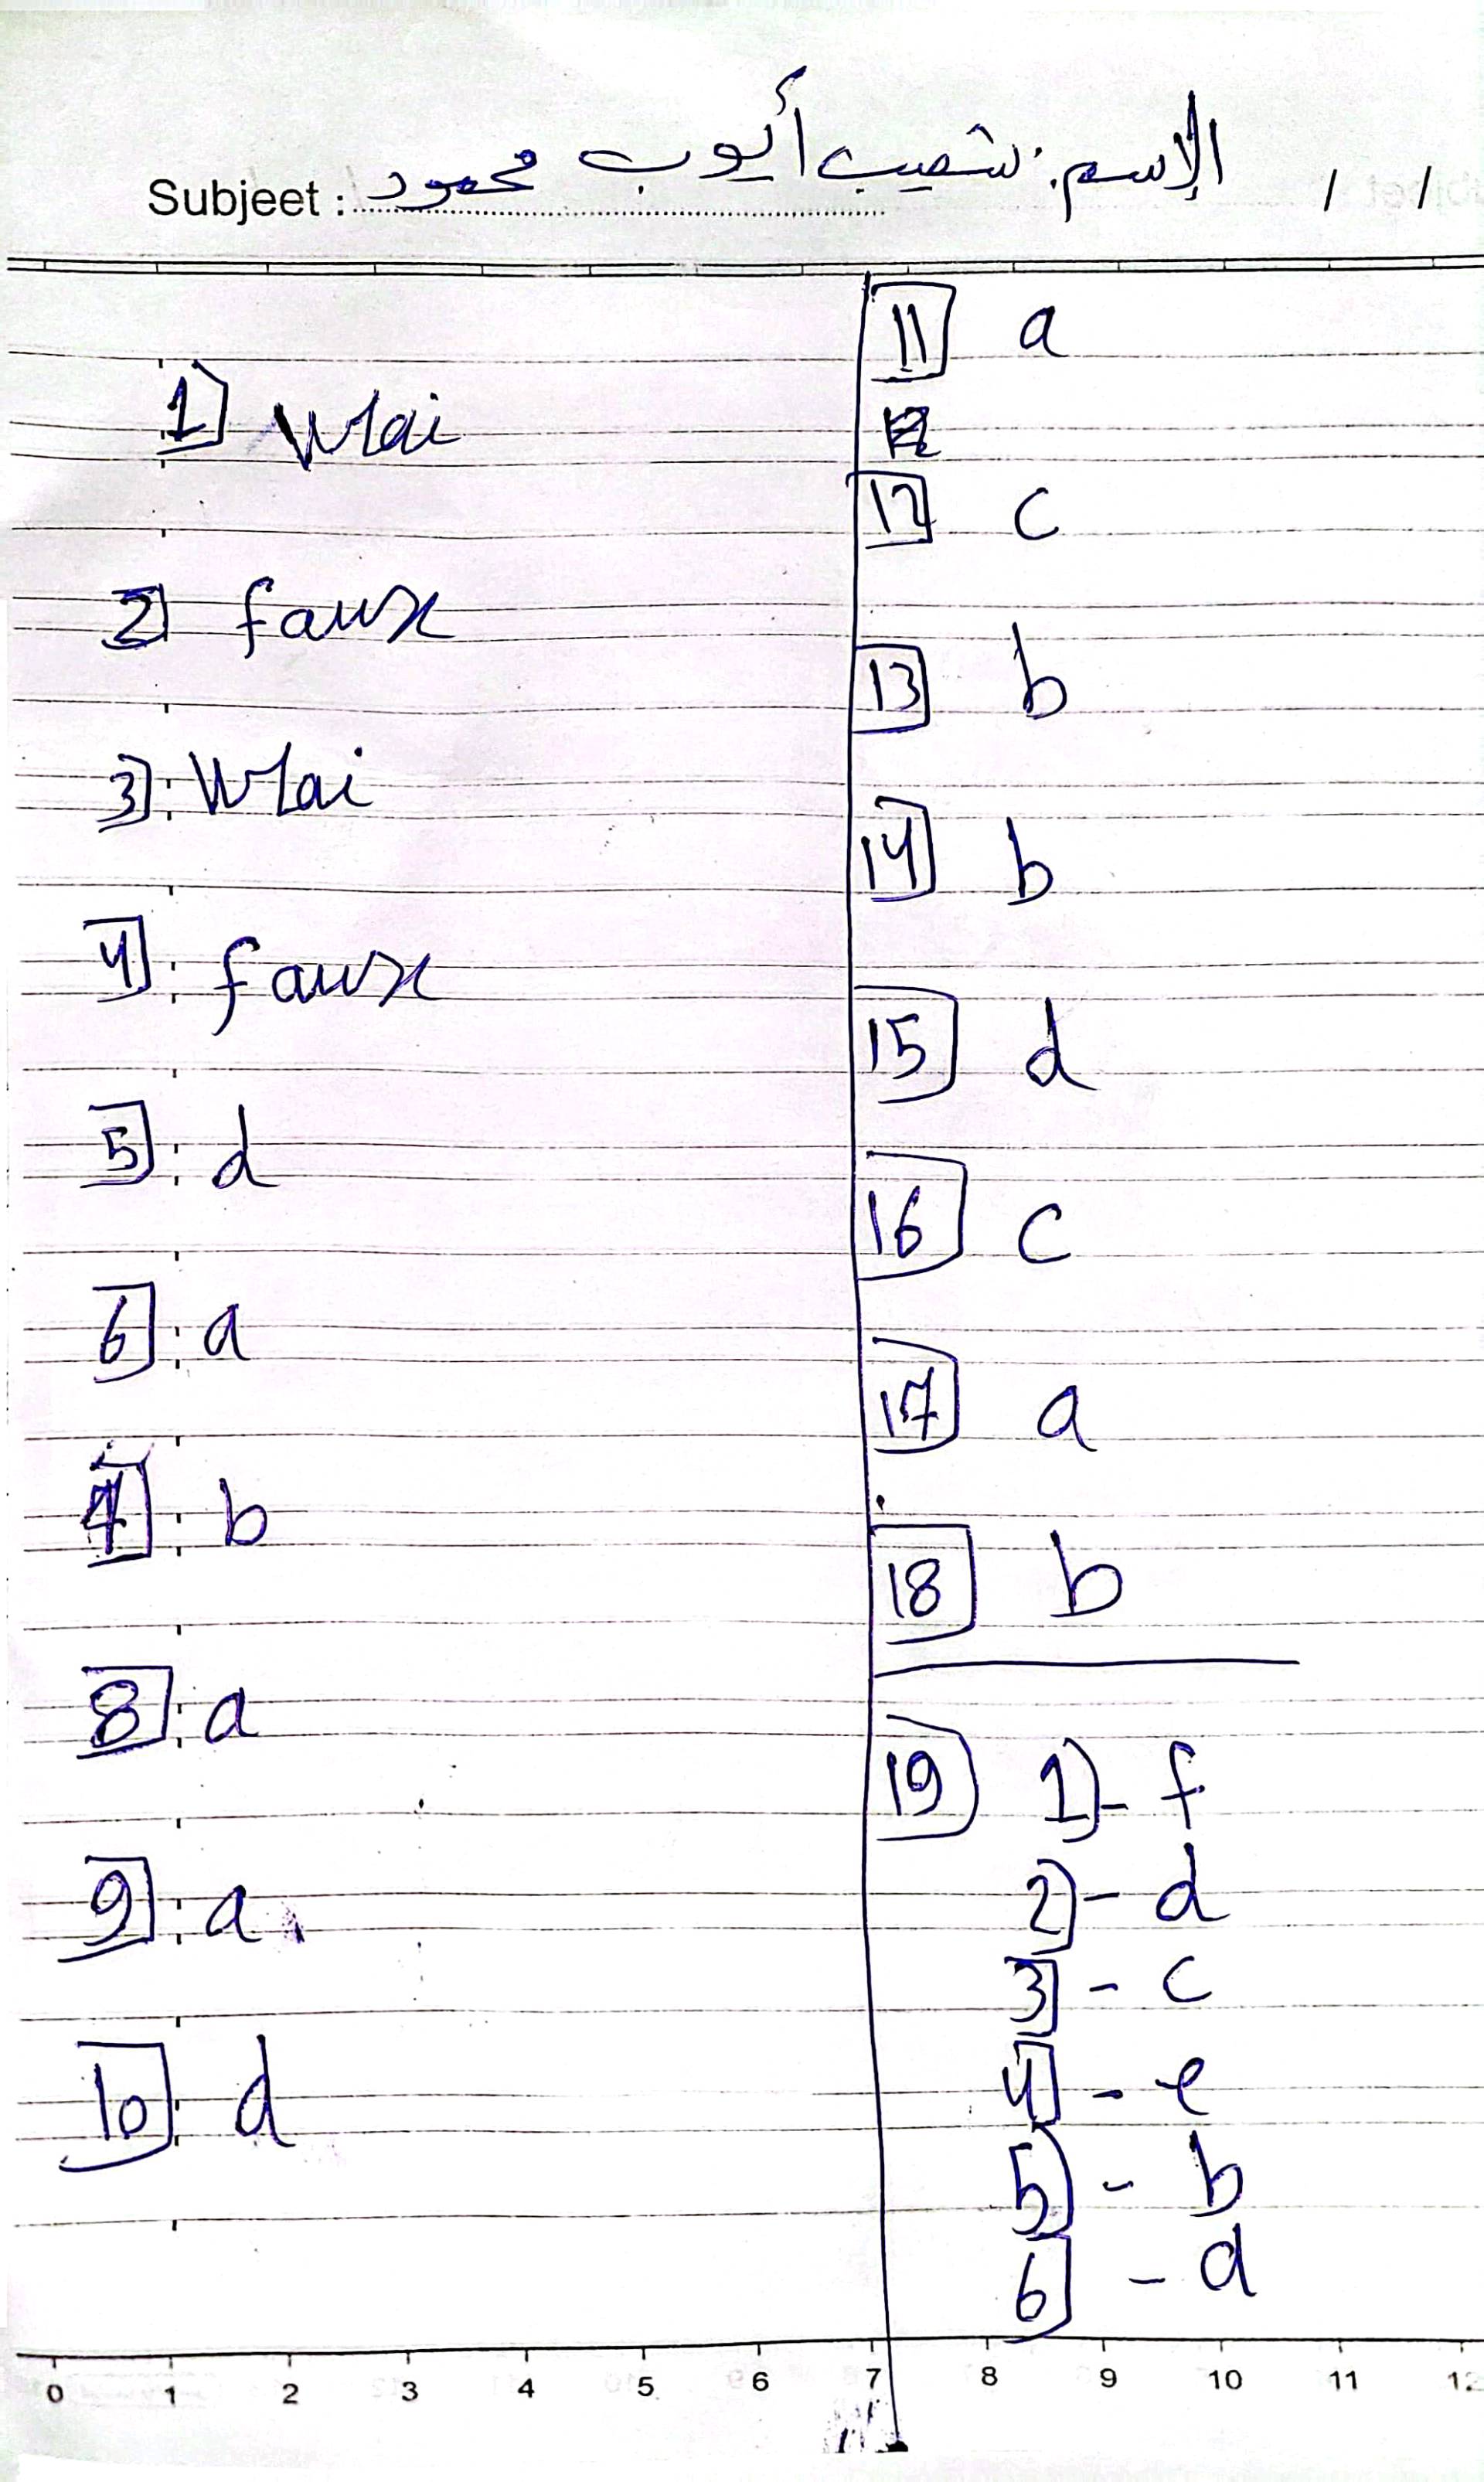 الإسم: شعيب أيوب محمود
Subjeet :
/ /
1) Vrai
2) faux
3) Vrai
4) faux
5) d
6) a
7) b
8) a
9) a
10) d
11 a
12 c
13 b
14 b
15 d
16 c
17 a
18 b
19 1)- f
2)- d
3 - c
4 - e
5)- b
6 - d
0 1 2 3 4 5 6 7 8 9 10 11